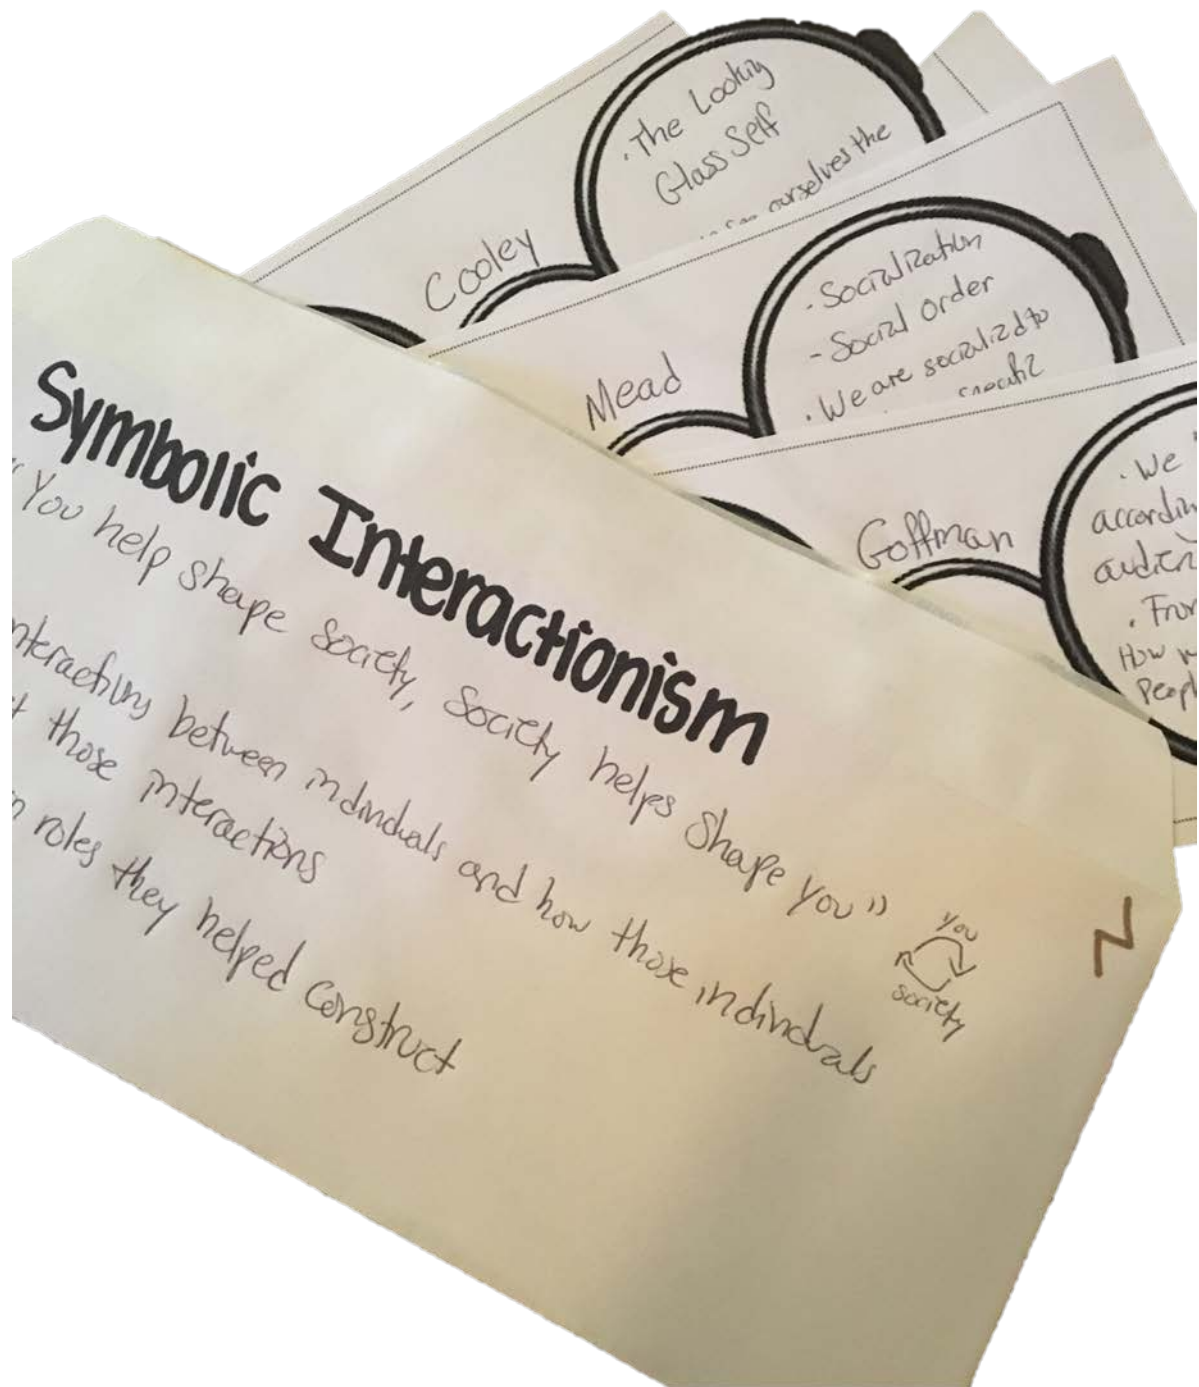 . The Looking
Glass Self
ourselves the
Cooley
- Socialization
- Social Order
. We are socialized to
Mead
. We
audien
.
How
Peopl
Goffman
Symbolic Interactionism
"You help shape society, society helps shape you"
You
society
nteractions between individuals and how those individuals
those interactions
roles they helped construct